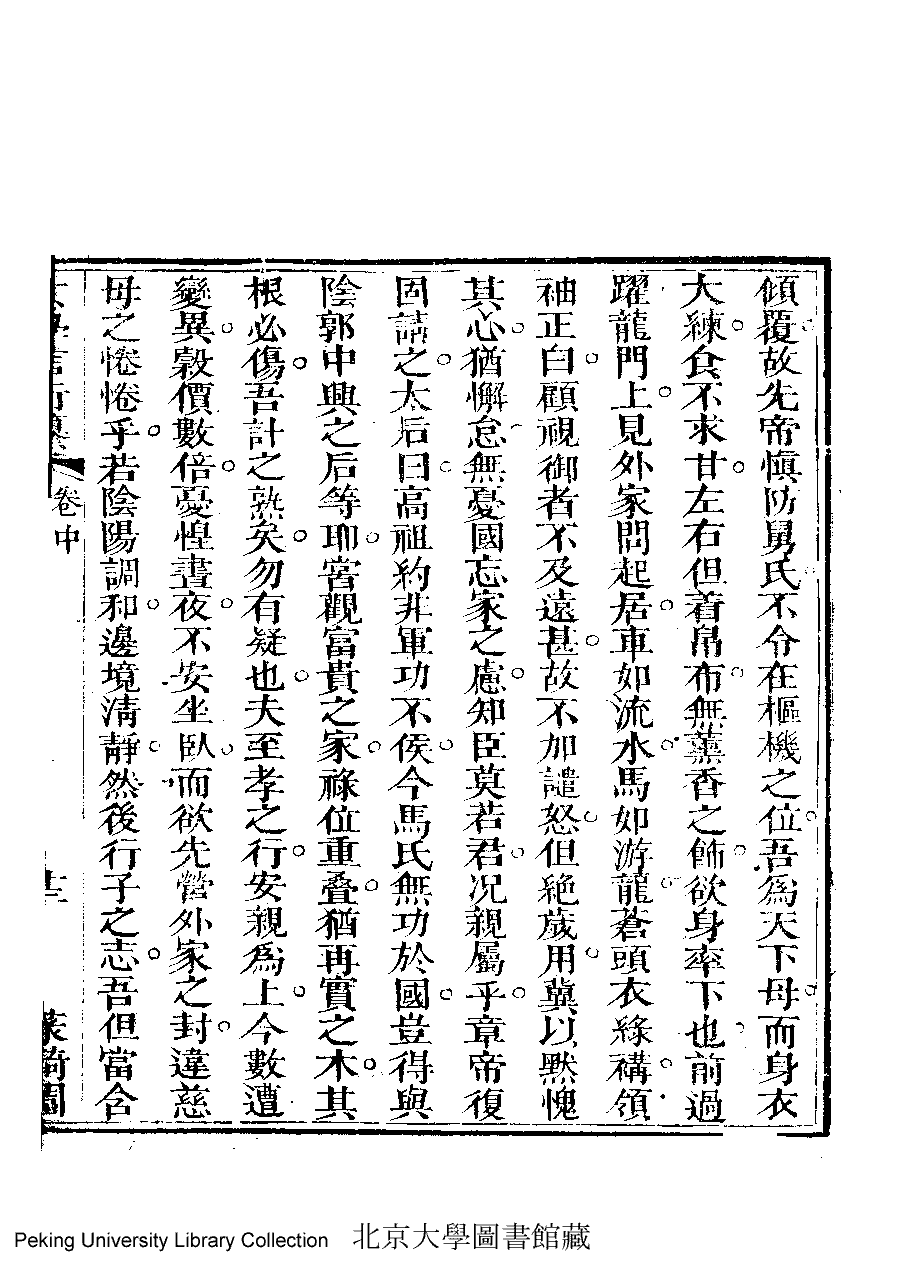 傾覆故先帝慎防舅氏不令在樞機之位吾為天下母而身衣
大練食不求甘左右但着帛布無薰香之飾欲身率下也前過
躍龍門上見外家問起居車如流水馬如游龍蒼頭衣綠褠領
袖正白顧視御者不及遠甚故不加譴怒但絕歲用冀以默愧
其心猶懈怠無憂國忘家之慮知臣莫若君况親屬乎章帝復
固請之太后曰高祖約非軍功不侯今馬氏無功於國豈得與
陰郭中興之后等耶甞觀富貴之家祿位重疊猶再實之木其
根必傷吾計之熟矣勿有疑也夫至孝之行安親為上今數遭
變異穀價數倍憂惶晝夜不安坐臥而欲先營外家之封違慈
母之惓惓乎若陰陽調和邊境清靜然後行子之志吾但當含
卷中
十三
Peking University Library Collection 北京大學圖書館藏